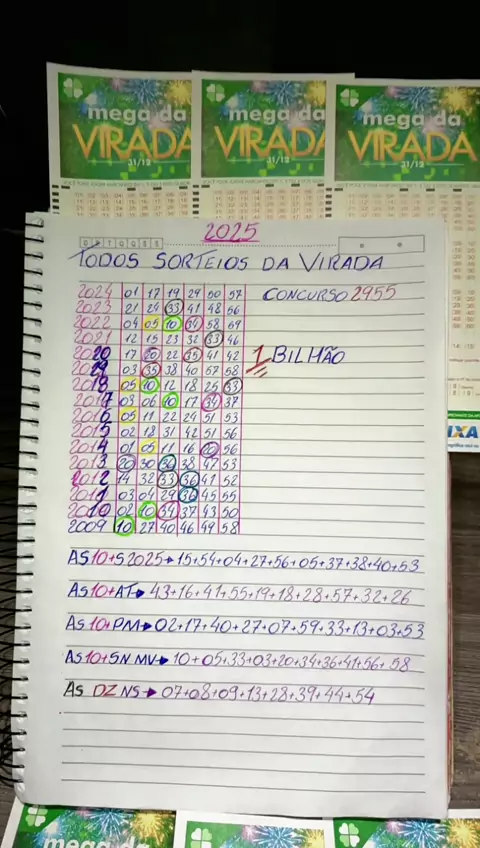 mega da VIRADA 31/12
mega da VIRADA 31/12
mega da VIRADA 31/12
2025
TODOS SORTEIOS DA VIRADA
2024 01 17 19 29 50 57 CONCURSO 2955
2023 21 24 33 41 48 56
2022 04 05 10 34 58 59
2021 12 15 23 32 33 46
2020 17 20 22 35 41 42 1 BILHÃO
2019 03 35 38 40 57 58
2018 05 10 12 18 25 33
2017 03 06 10 17 34 37
2016 05 11 22 24 51 53
2015 02 18 31 42 51 56
2014 01 05 11 16 20 56
2013 20 30 36 38 47 53
2012 14 32 33 36 41 52
2011 03 04 29 36 45 55
2010 02 10 34 37 43 50
2009 10 27 40 46 49 58
AS 10+S 2025→15+54+04+27+56+05+37+38+40+53
AS 10+AT→43+16+41+55+19+18+28+57+32+26
AS 10+PM→02+17+40+27+07+59+33+13+03+53
AS 10+SN MV→10+05+33+03+20+34+36+41+56+58
AS DZ NS→07+08+09+13+28+39+44+54
CAIXA
mega da
mega da